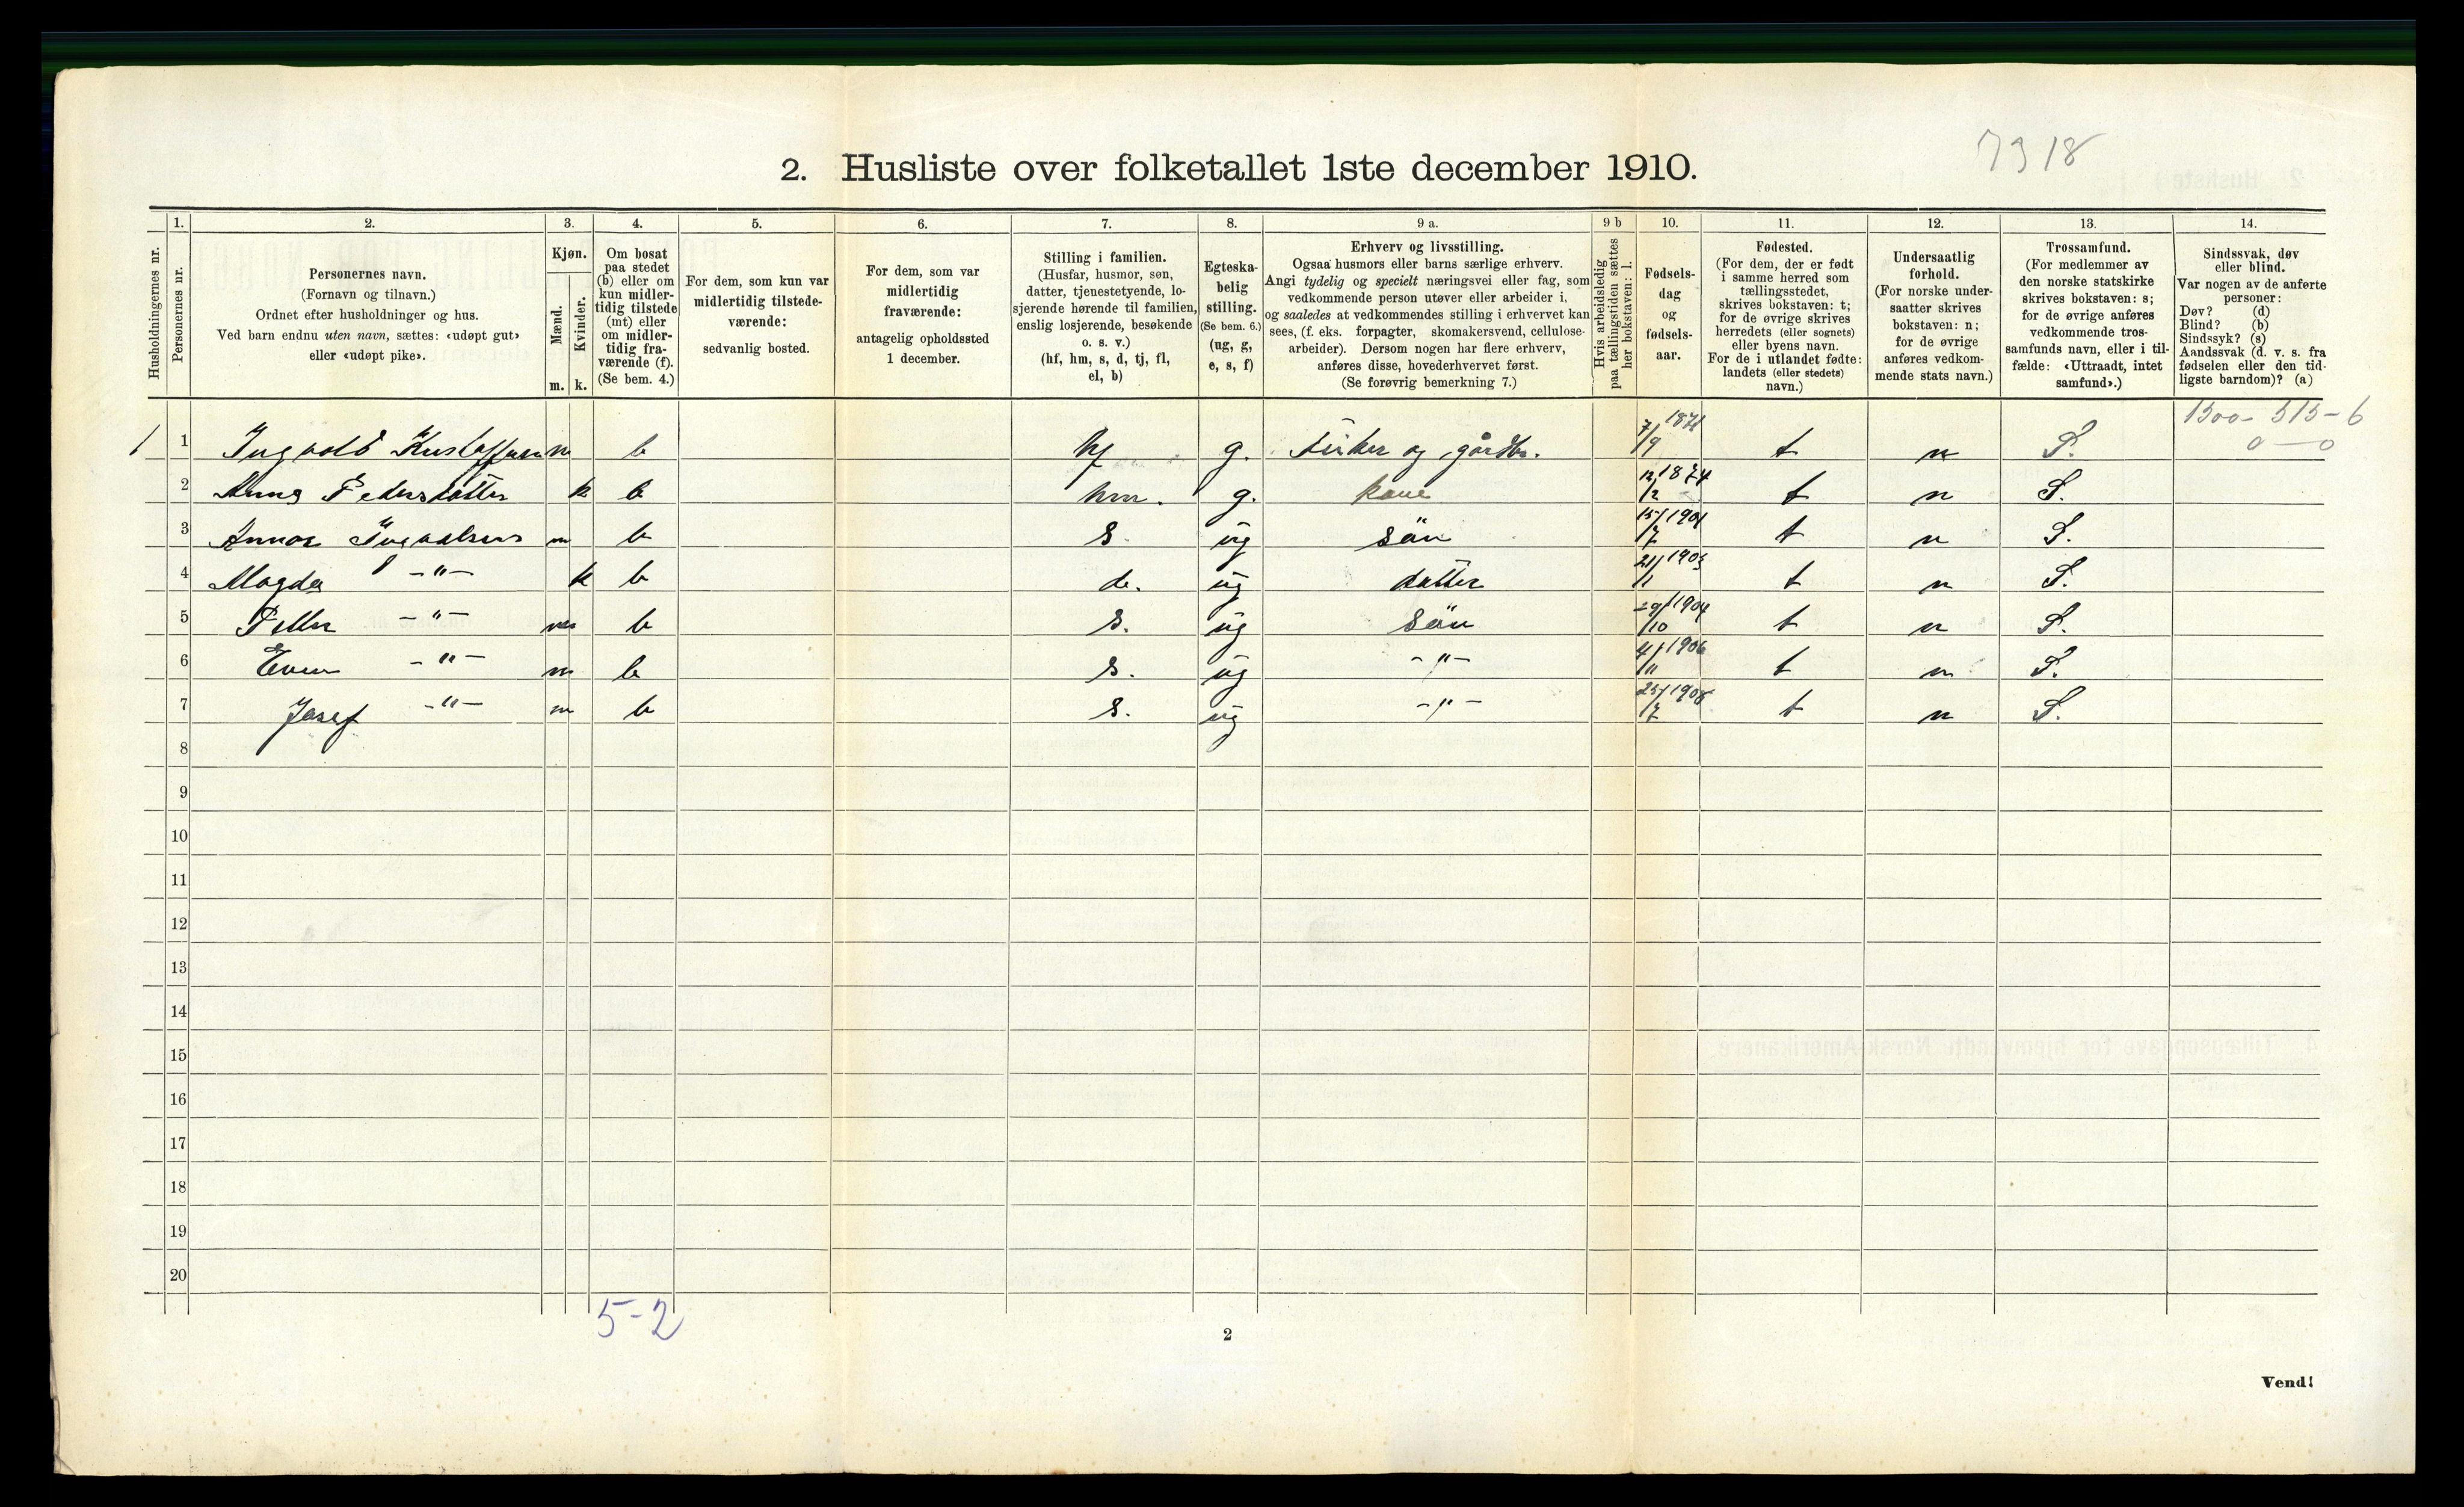 7918
2. Husliste over folketallet 1ste december 1910.
Husholdningernes nr.
1.
Personernes nr.
2.
Personernes navn.
(Fornavn og tilnavn.)
Ordnet efter husholdninger og hus.
Ved barn endnu uten navn, sættes: «udøpt gut»
eller «udøpt pike».
3.
Kjøn.
Mænd.
Kvinder.
m. k.
4.
Om bosat
paa stedet
(b) eller om
kun midler-
tidig tilstede
(mt) eller
om midler-
tidig fra-
værende (f).
(Se bem. 4.)
5.
For dem, som kun var
midlertidig tilstede-
værende:
sedvanlig bosted.
6.
For dem, som var
midlertidig
fraværende:
antagelig opholdssted
1 december.
7.
Stilling i familien.
(Husfar, husmor, søn,
datter, tjenestetyende, lo-
sjerende hørende til familien,
enslig losjerende, besøkende
o. s. v.)
(hf, hm, s, d, tj, fl,
el, b)
8.
Egteska-
belig
stilling.
(Se bem. 6.)
(ug, g,
e, s, f)
9 a.
Erhverv og livsstilling.
Ogsaa husmors eller barns særlige erhverv.
Angi tydelig og specielt næringsvei eller fag, som
vedkommende person utøver eller arbeider i,
og saaledes at vedkommendes stilling i erhvervet kan
sees, (f. eks. forpagter, skomakersvend, cellulose-
arbeider). Dersom nogen har flere erhverv,
anføres disse, hovederhvervet først.
(Se forøvrig bemerkning 7.)
9 b
Hvis arbeidsledig
paa tællingstiden sættes
her bokstaven: l.
10.
Fødsels-
dag
og
fødsels-
aar.
11.
Fødested.
(For dem, der er født
i samme herred som
tællingsstedet,
skrives bokstaven: t;
for de øvrige skrives
herredets (eller sognets)
eller byens navn.
For de i utlandet fødte:
landets (eller stedets)
navn.)
12.
Undersaatlig
forhold.
(For norske under-
saatter skrives
bokstaven: n;
for de øvrige
anføres vedkom-
mende stats navn.)
13.
Trossamfund.
(For medlemmer av
den norske statskirke
skrives bokstaven: s;
for de øvrige anføres
vedkommende tros-
samfunds navn, eller i til-
fælde: «Uttraadt, intet
samfund».)
14.
Sindssvak, døv
eller blind.
Var nogen av de anførte
personer:
Døv? (d)
Blind? (b)
Sindssyk? (s)
Aandssvak (d. v. s. fra
fødselen eller den tid-
ligste barndom)? (a)
1500 - 515 - 6
0 — 0
1 1 Ingvald m b hf g. Fisker og gårdbr. 7/9 t n S.
2 Anna Pedersdatter k b hm. g. kone 12/2 1874 t n S.
3 Annar Ingvalsen m b s. ug sön 15/7 1901 t n S.
4 Magda -"- k b d. ug datter 21/1 1903 t n S.
5 Petter -"- m b s. ug sön 29/10 1904 t n S.
6 Even -"- m b s. ug -"- 4/11 1906 t n S.
7 Josef -"- m b s. ug -"- 25/7 1908 t n S.
8
9
10
11
12
13
14
15
16
17
18
19
20
5-2
2
Vend!